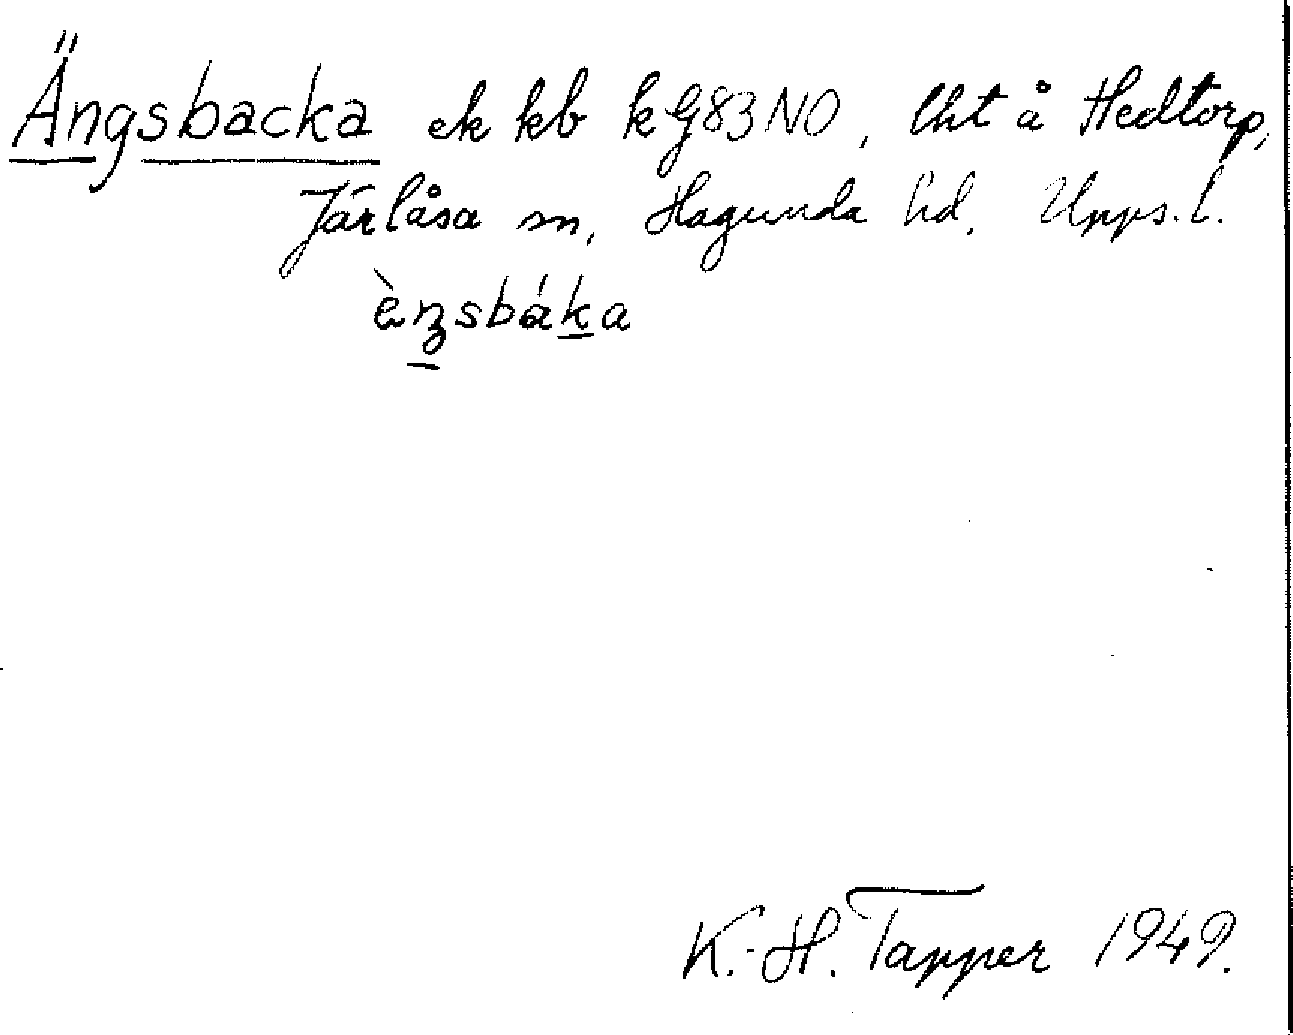 Ängsbacka ek kb kG83NO, lht å Hedtorp,
Järlåsa sn, Hagunda hd, Upps. l.
K.-H. Tapper 1949.